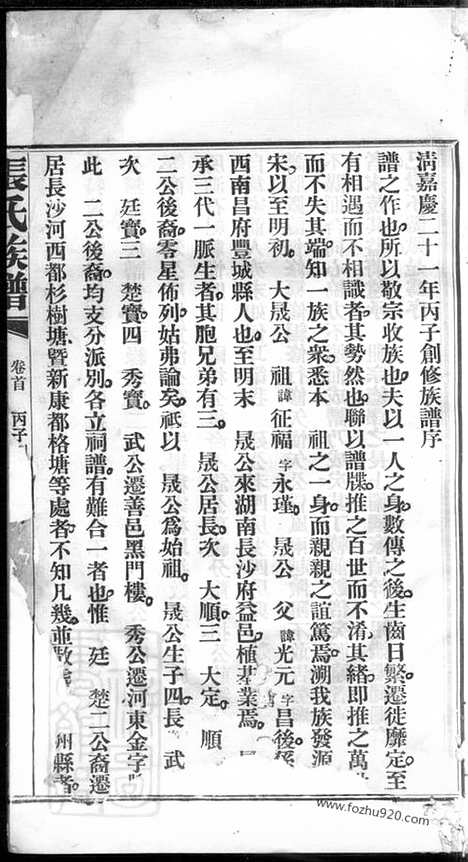 清嘉慶二十一年丙子創修族譜序
譜之作也所以敬宗收族也夫以一人之身數傳之後生齒日繁遷徙靡定至
有相遇而不相識者其勢然也聯以譜牒推之百世而不淆其緒即推之萬
而不失其端知一族之衆悉本 祖之一身而親親之誼篤焉溯我族發源
宋以至明初 大晟公 祖諱征福字永瑾 晟公 父諱光元字昌後
西南昌府豐城縣人也至明末 晟公來湖南長沙府益邑植基業焉
承三代一脈生者其胞兄弟有三 晟公居長次 大順三 大定 順
二公後裔零星佈列姑弗論矣祗以 晟公爲始祖 晟公生子四長 武
次 廷寶三 楚寶四 秀寶 武公遷善邑黑門樓 秀公遷河東金字
此 二公後裔均支分派別各立祠譜有難合一者也惟 廷 楚二公裔遷
居長沙河西都杉樹塘暨新康都格塘等處者不知凡幾並 州縣者
張氏族譜
卷首 丙子
www.fozhu920.com